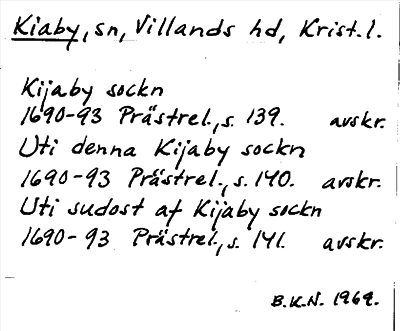 Kiaby, sn, Villands hd, Krist. l.
Kijaby sockn
1690-93 Prästrel., s. 139. avskr.
Uti denna Kijaby sockn
1690-93 Prästrel., s. 140. avskr.
Uti sudost af Kijaby sockn
1690-93 Prästrel., s. 141. avskr.
B.K.N. 1969.